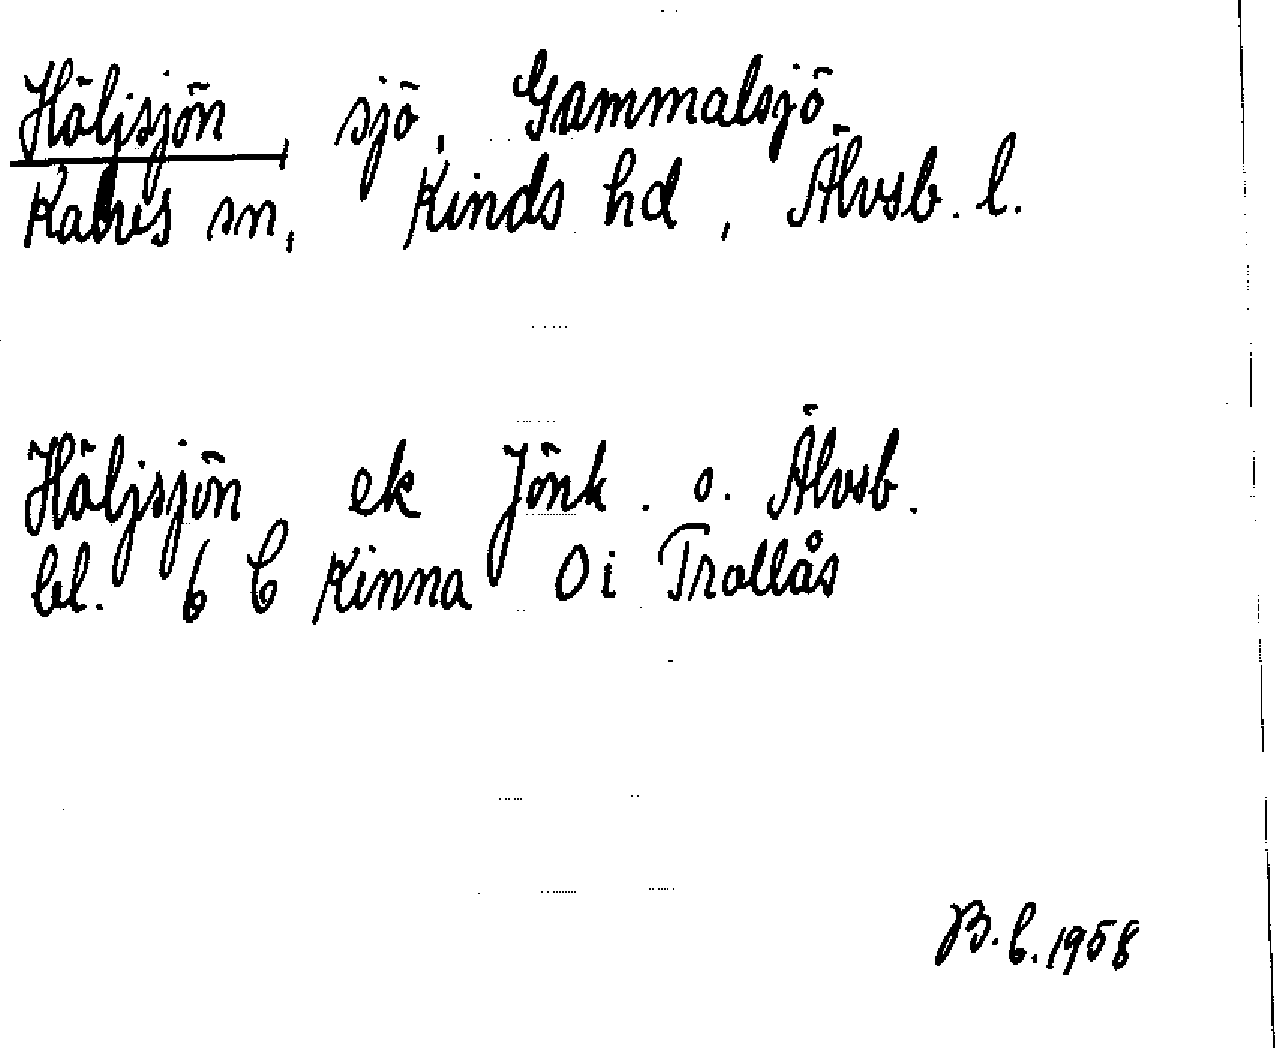 Höljsjön, sjö, Gammalsjö,
Kalvs sn, Kinds hd, Älvsb. l.
Höljsjön ek Jönk. o. Älvsb.
bl. 6 C Kinna O i Trollås
B.C. 1958